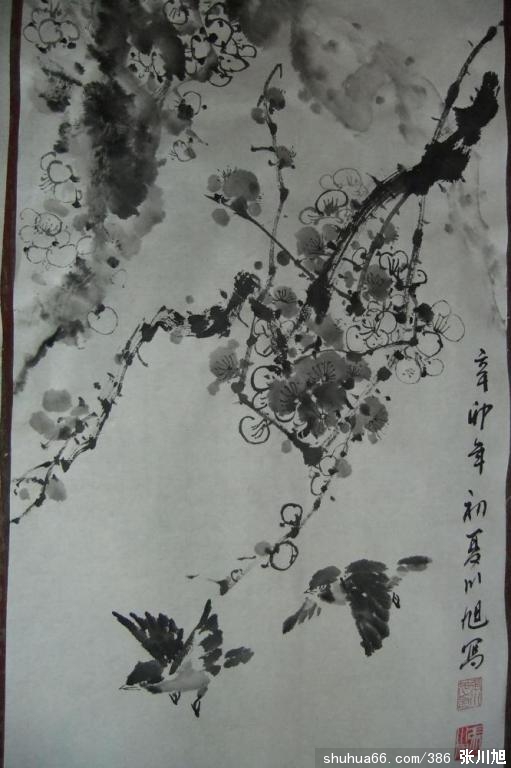 辛卯年初夏川旭写
shuhua66.com/386 张川旭